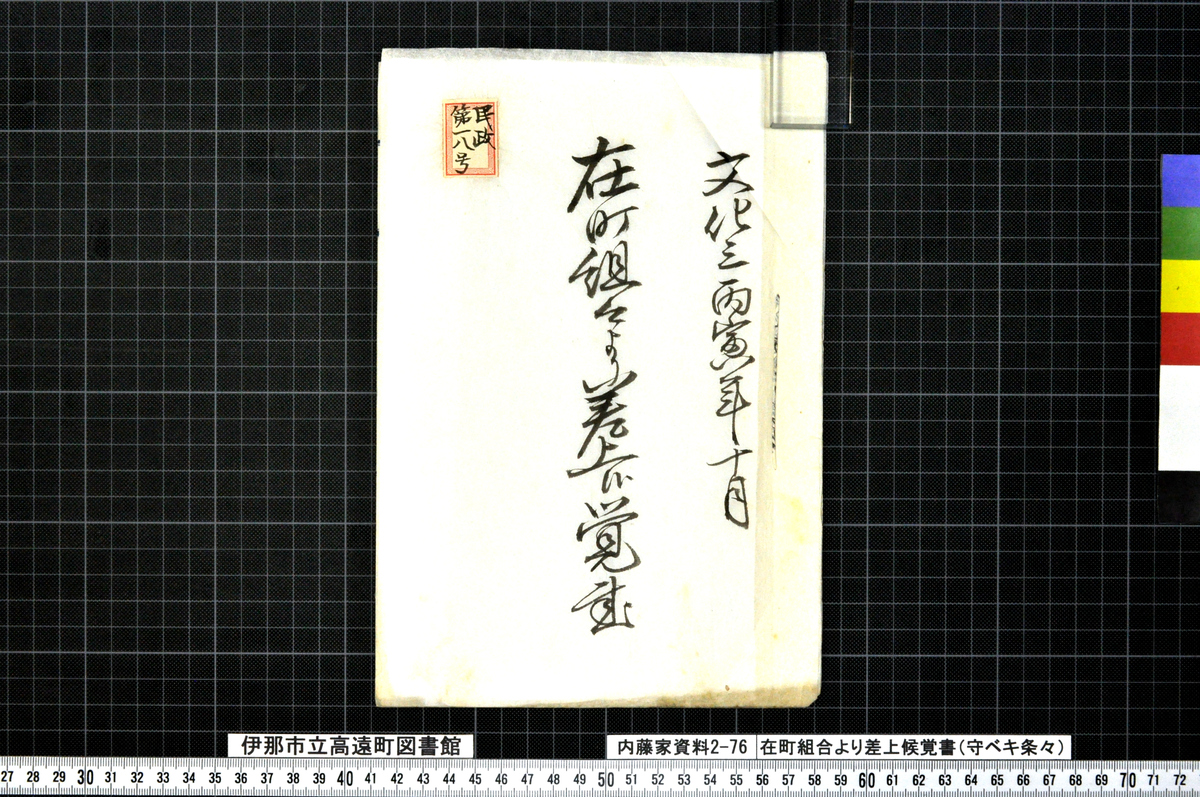 文化三丙寅年十月
在町組合より差上候覚書
民政
第一八号
伊那市立高遠町図書館
内藤家資料2-76 在町組合より差上候覚書(守ベキ条々)
27 28 29 30 31 32 33 34 35 36 37 38 39 40 41 42 43 44 45 46 47 48 49 50 51 52 53 54 55 56 57 58 59 60 61 62 63 64 65 66 67 68 69 70 71 72